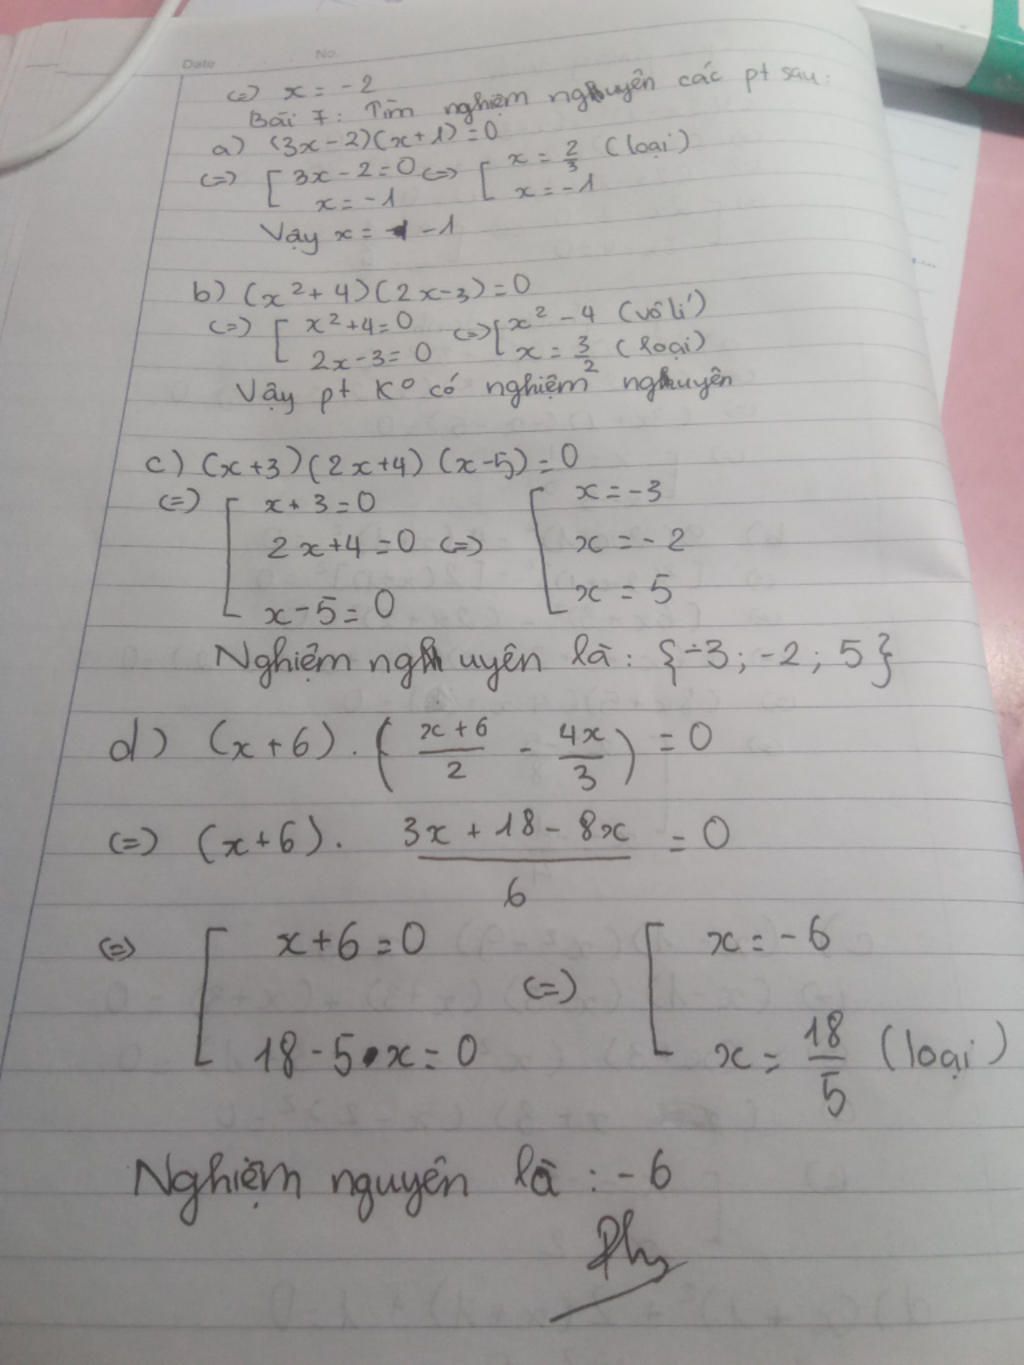 Date No.
(=) x = -2
Bài 7: Tìm nghiệm nguyên các pt sau:
a) (3x-2)(x+1)=0
(=) [ 3x-2=0 (=) [ x = 2/3 (loại)
x = -1 x = -1
Vậy x = -1
b) (x²+4)(2x-3)=0
(=) [ x²+4=0 (=) [ x² - 4 (vô lí)
2x-3=0 x = 3/2 (loại)
Vậy pt K° có nghiệm nguyên
c) (x+3)(2x+4)(x-5)=0
(=) [ x+3=0 [ x=-3
2x+4=0 (=) x=-2
x-5=0 x=5
Nghiệm nguyên là: {-3; -2; 5}
d) (x+6).( (x+6)/2 - 4x/3 ) = 0
(=) (x+6). (3x+18-8x)/6 = 0
(=) [ x+6=0 (=) [ x=-6
18-5.x=0 x = 18/5 (loại)
Nghiệm nguyên là: -6